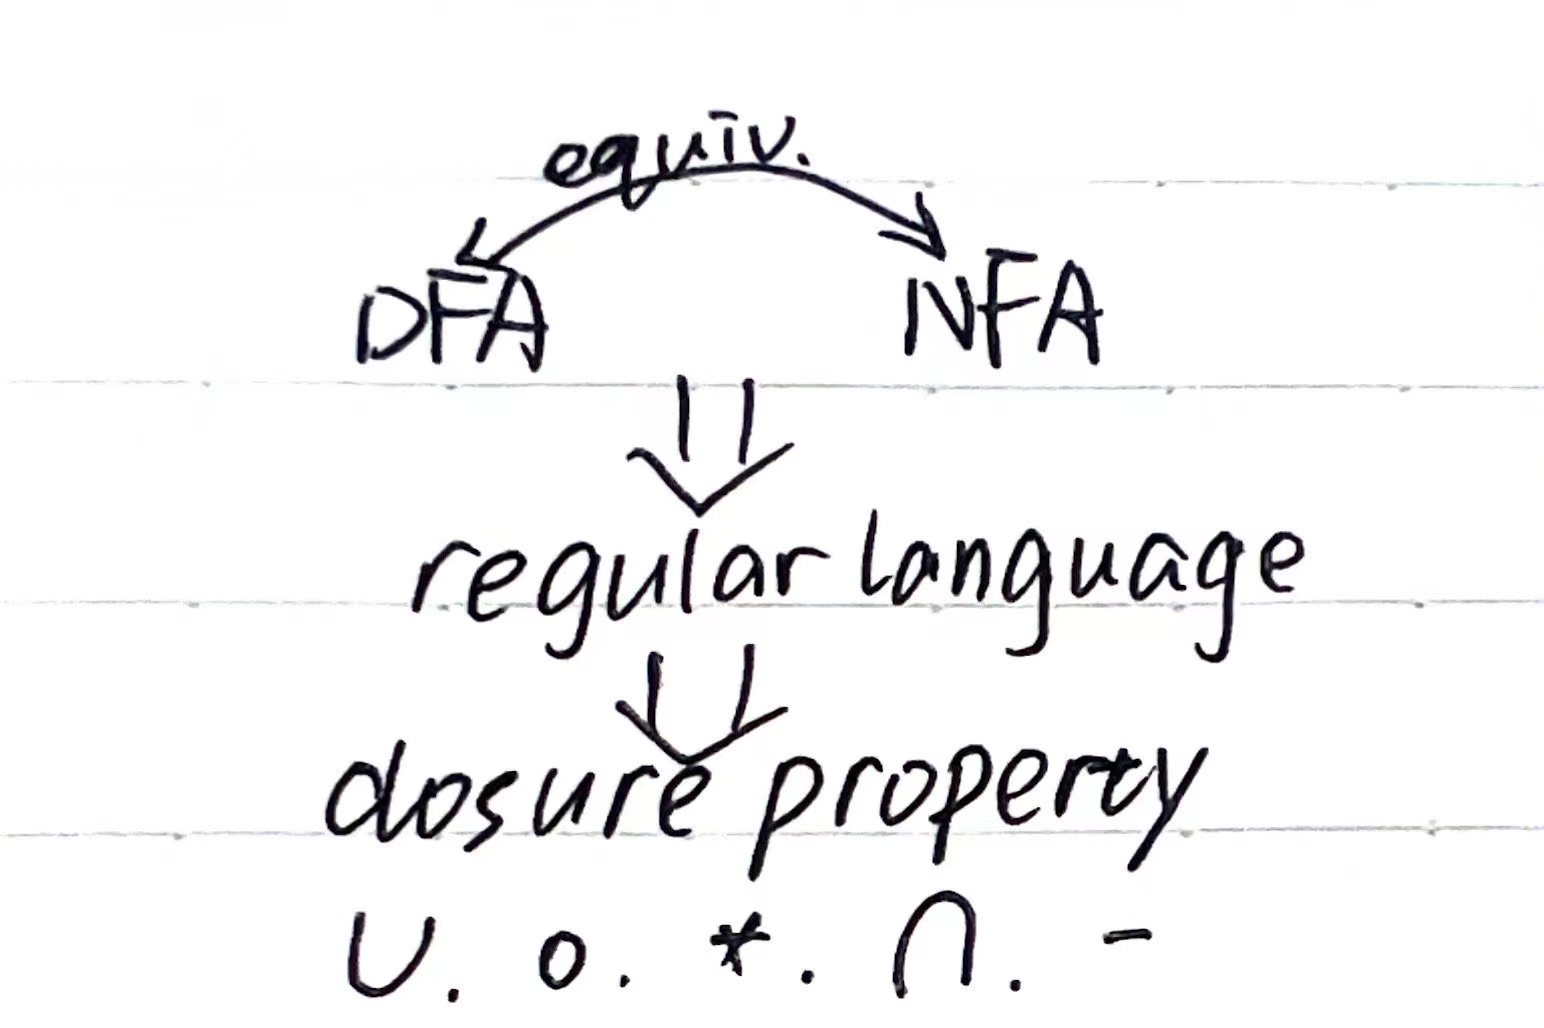 equiv.
DFA NFA
regular language
closure property
∪. o. *. ∩. -